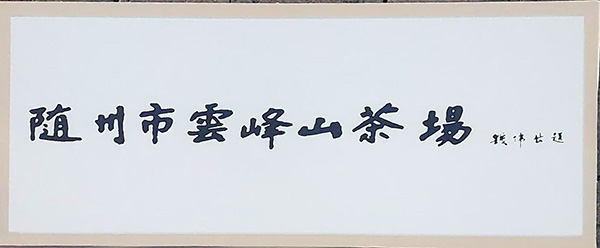 随州市雲峰山茶場
钱偉长題